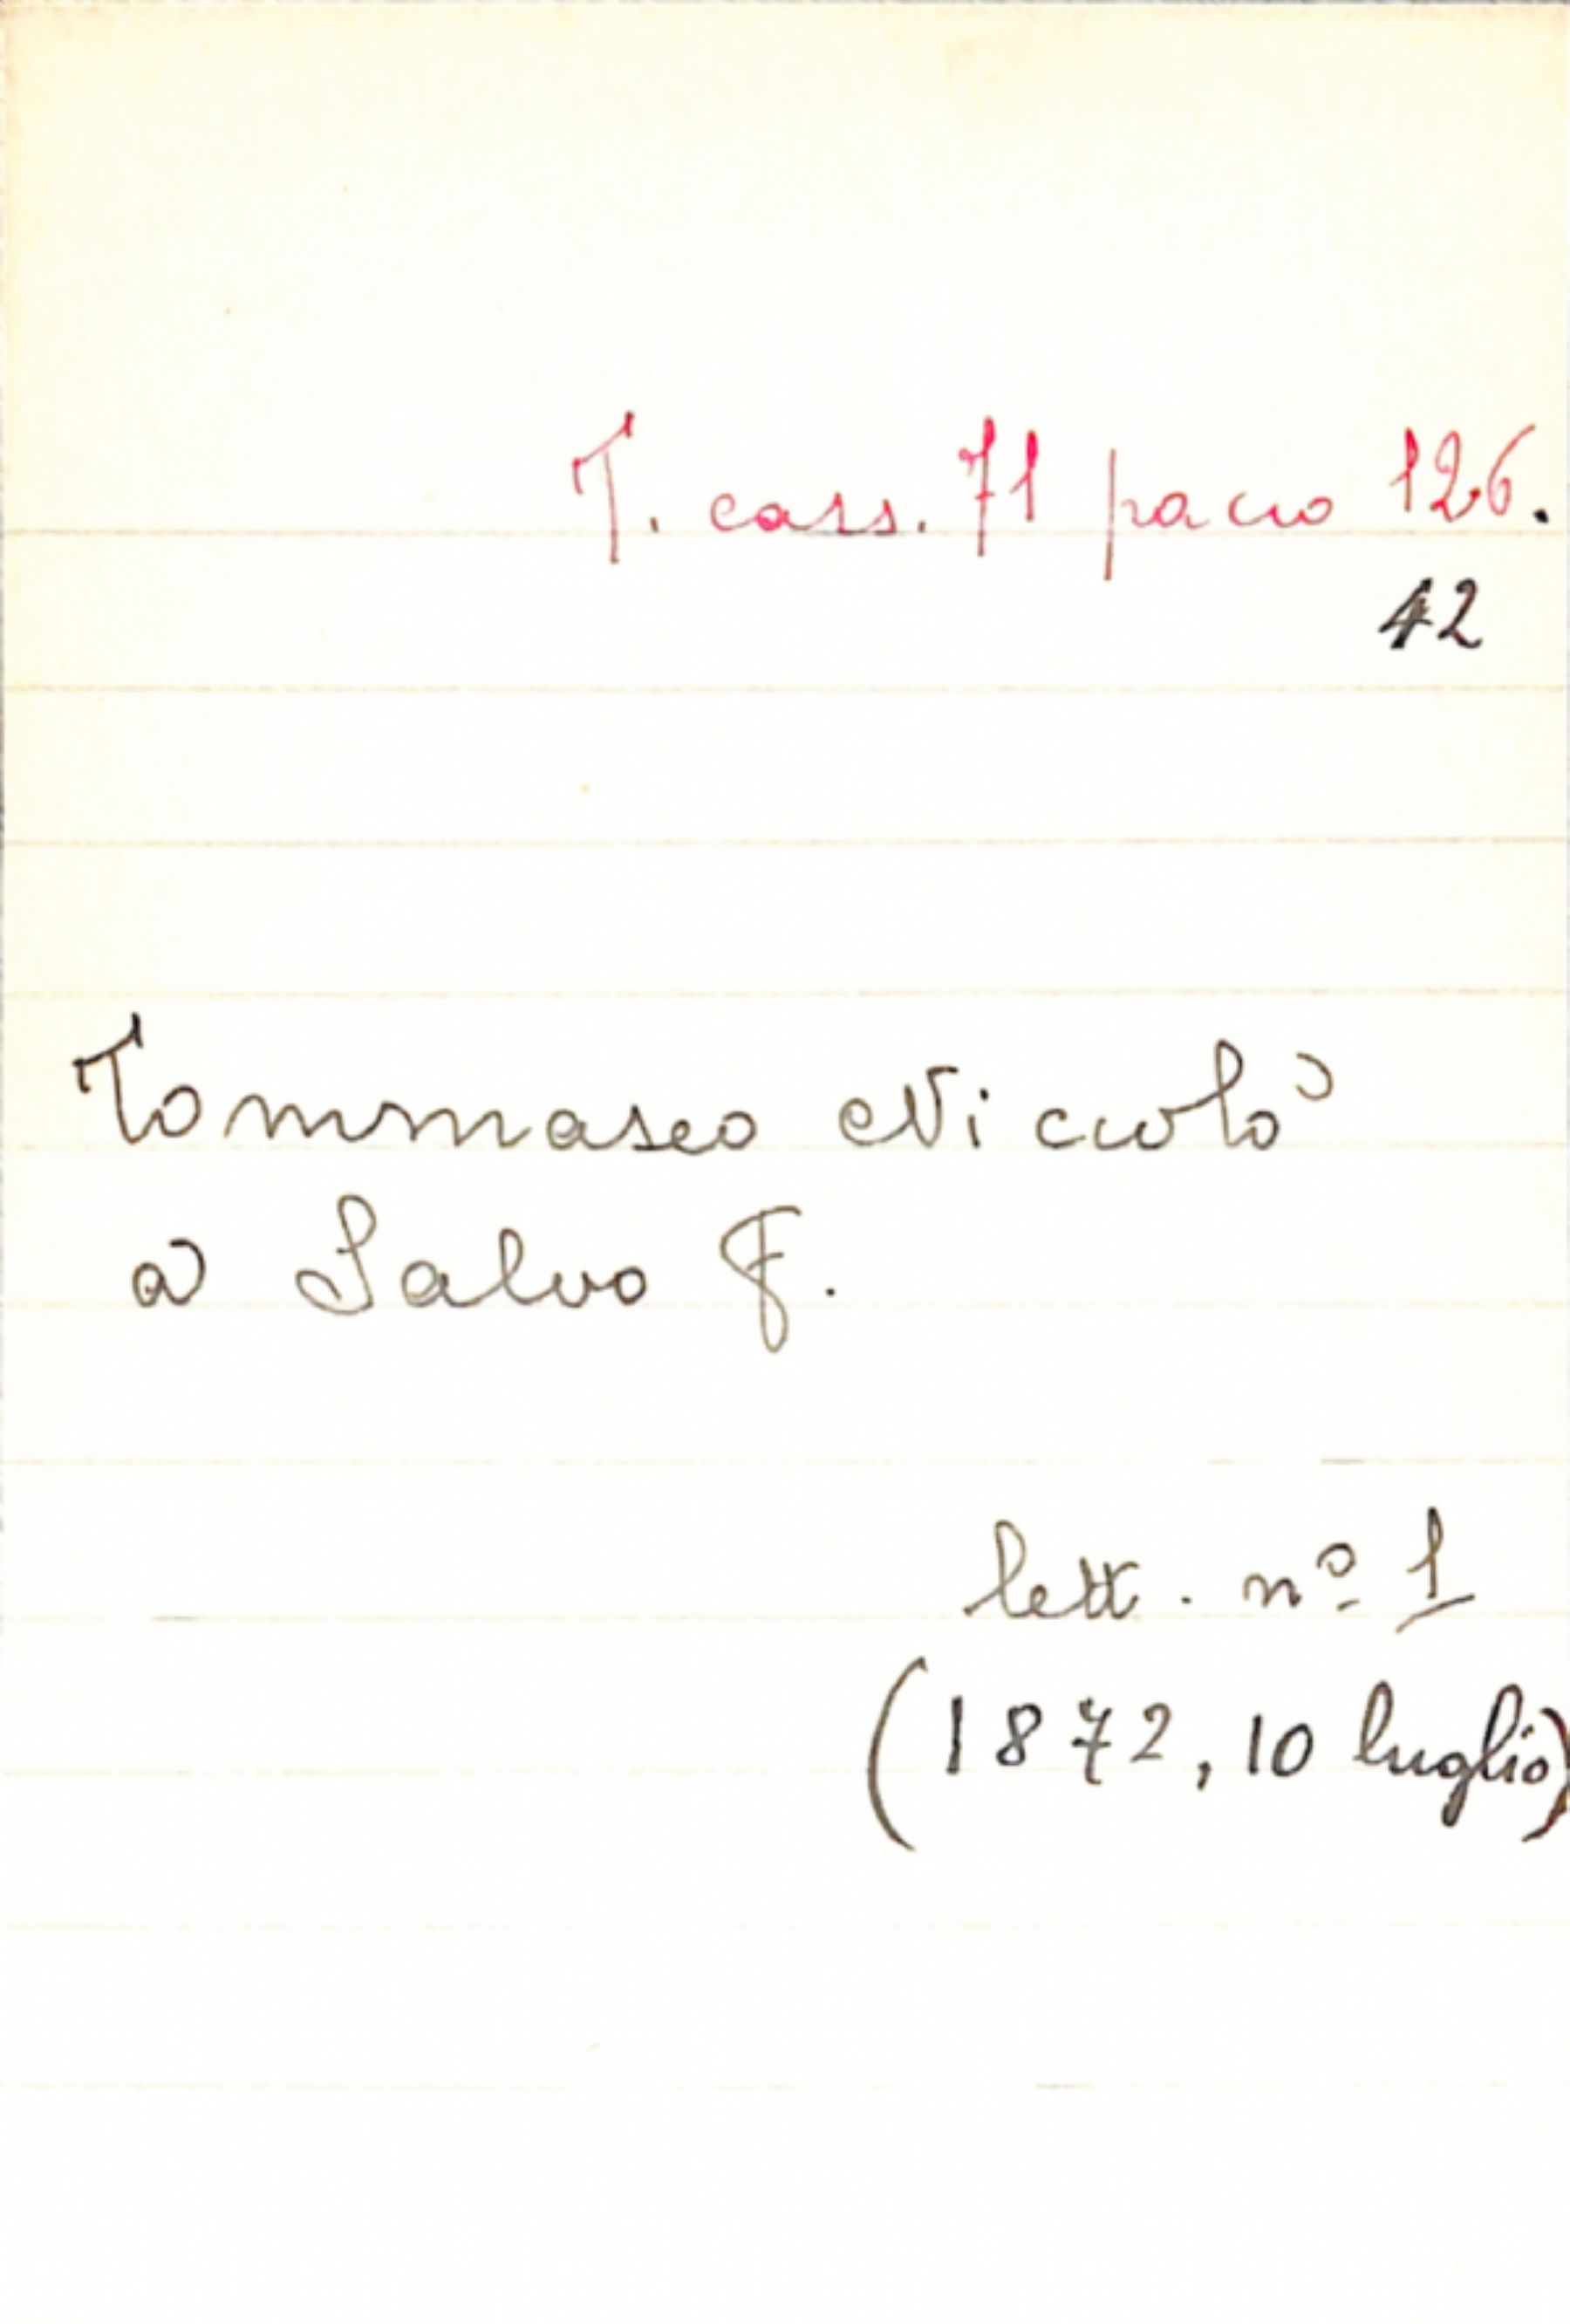 T. cass. 71 pacco 126.
42
Tommaseo Niccolò
a Salvo F.
lett. nº 1
(1872, 10 luglio)